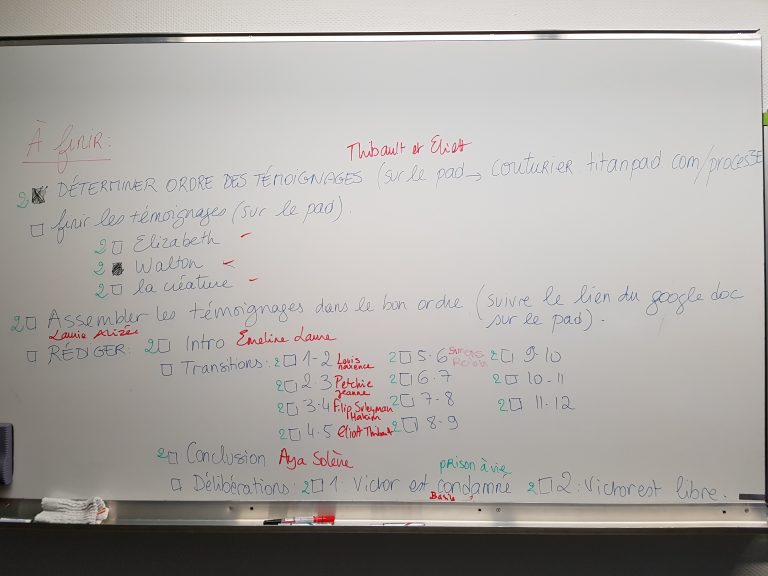 À finir:
Thibault et Eliott
2 DÉTERMINER ORDRE DES TÉMOIGNAGES (sur le pad → couturier.titanpad.com/process3E
finir les témoignages (sur le pad).
2 Elizabeth -
2 Walton -
2 la créature -
2 Assembler les témoignages dans le bon ordre (suivre le lien du google doc
sur le pad).
Laurie Alizée
RÉDIGER: 2 Intro Emeline Laura
Transitions: 2 1-2 Louis maxence 2 5-6 2 9-10
2 2-3 Petchie Jeanne 2 6-7 2 10-11
2 3-4 Filip Suleyman Hakim 2 7-8 2 11-12
2 4-5 Eliott Thibault 2 8-9
2 Conclusion Aya Solène
prison à vie
Délibérations: 2 1 Victor est condamné 2 2: Victor est libre.
Basile